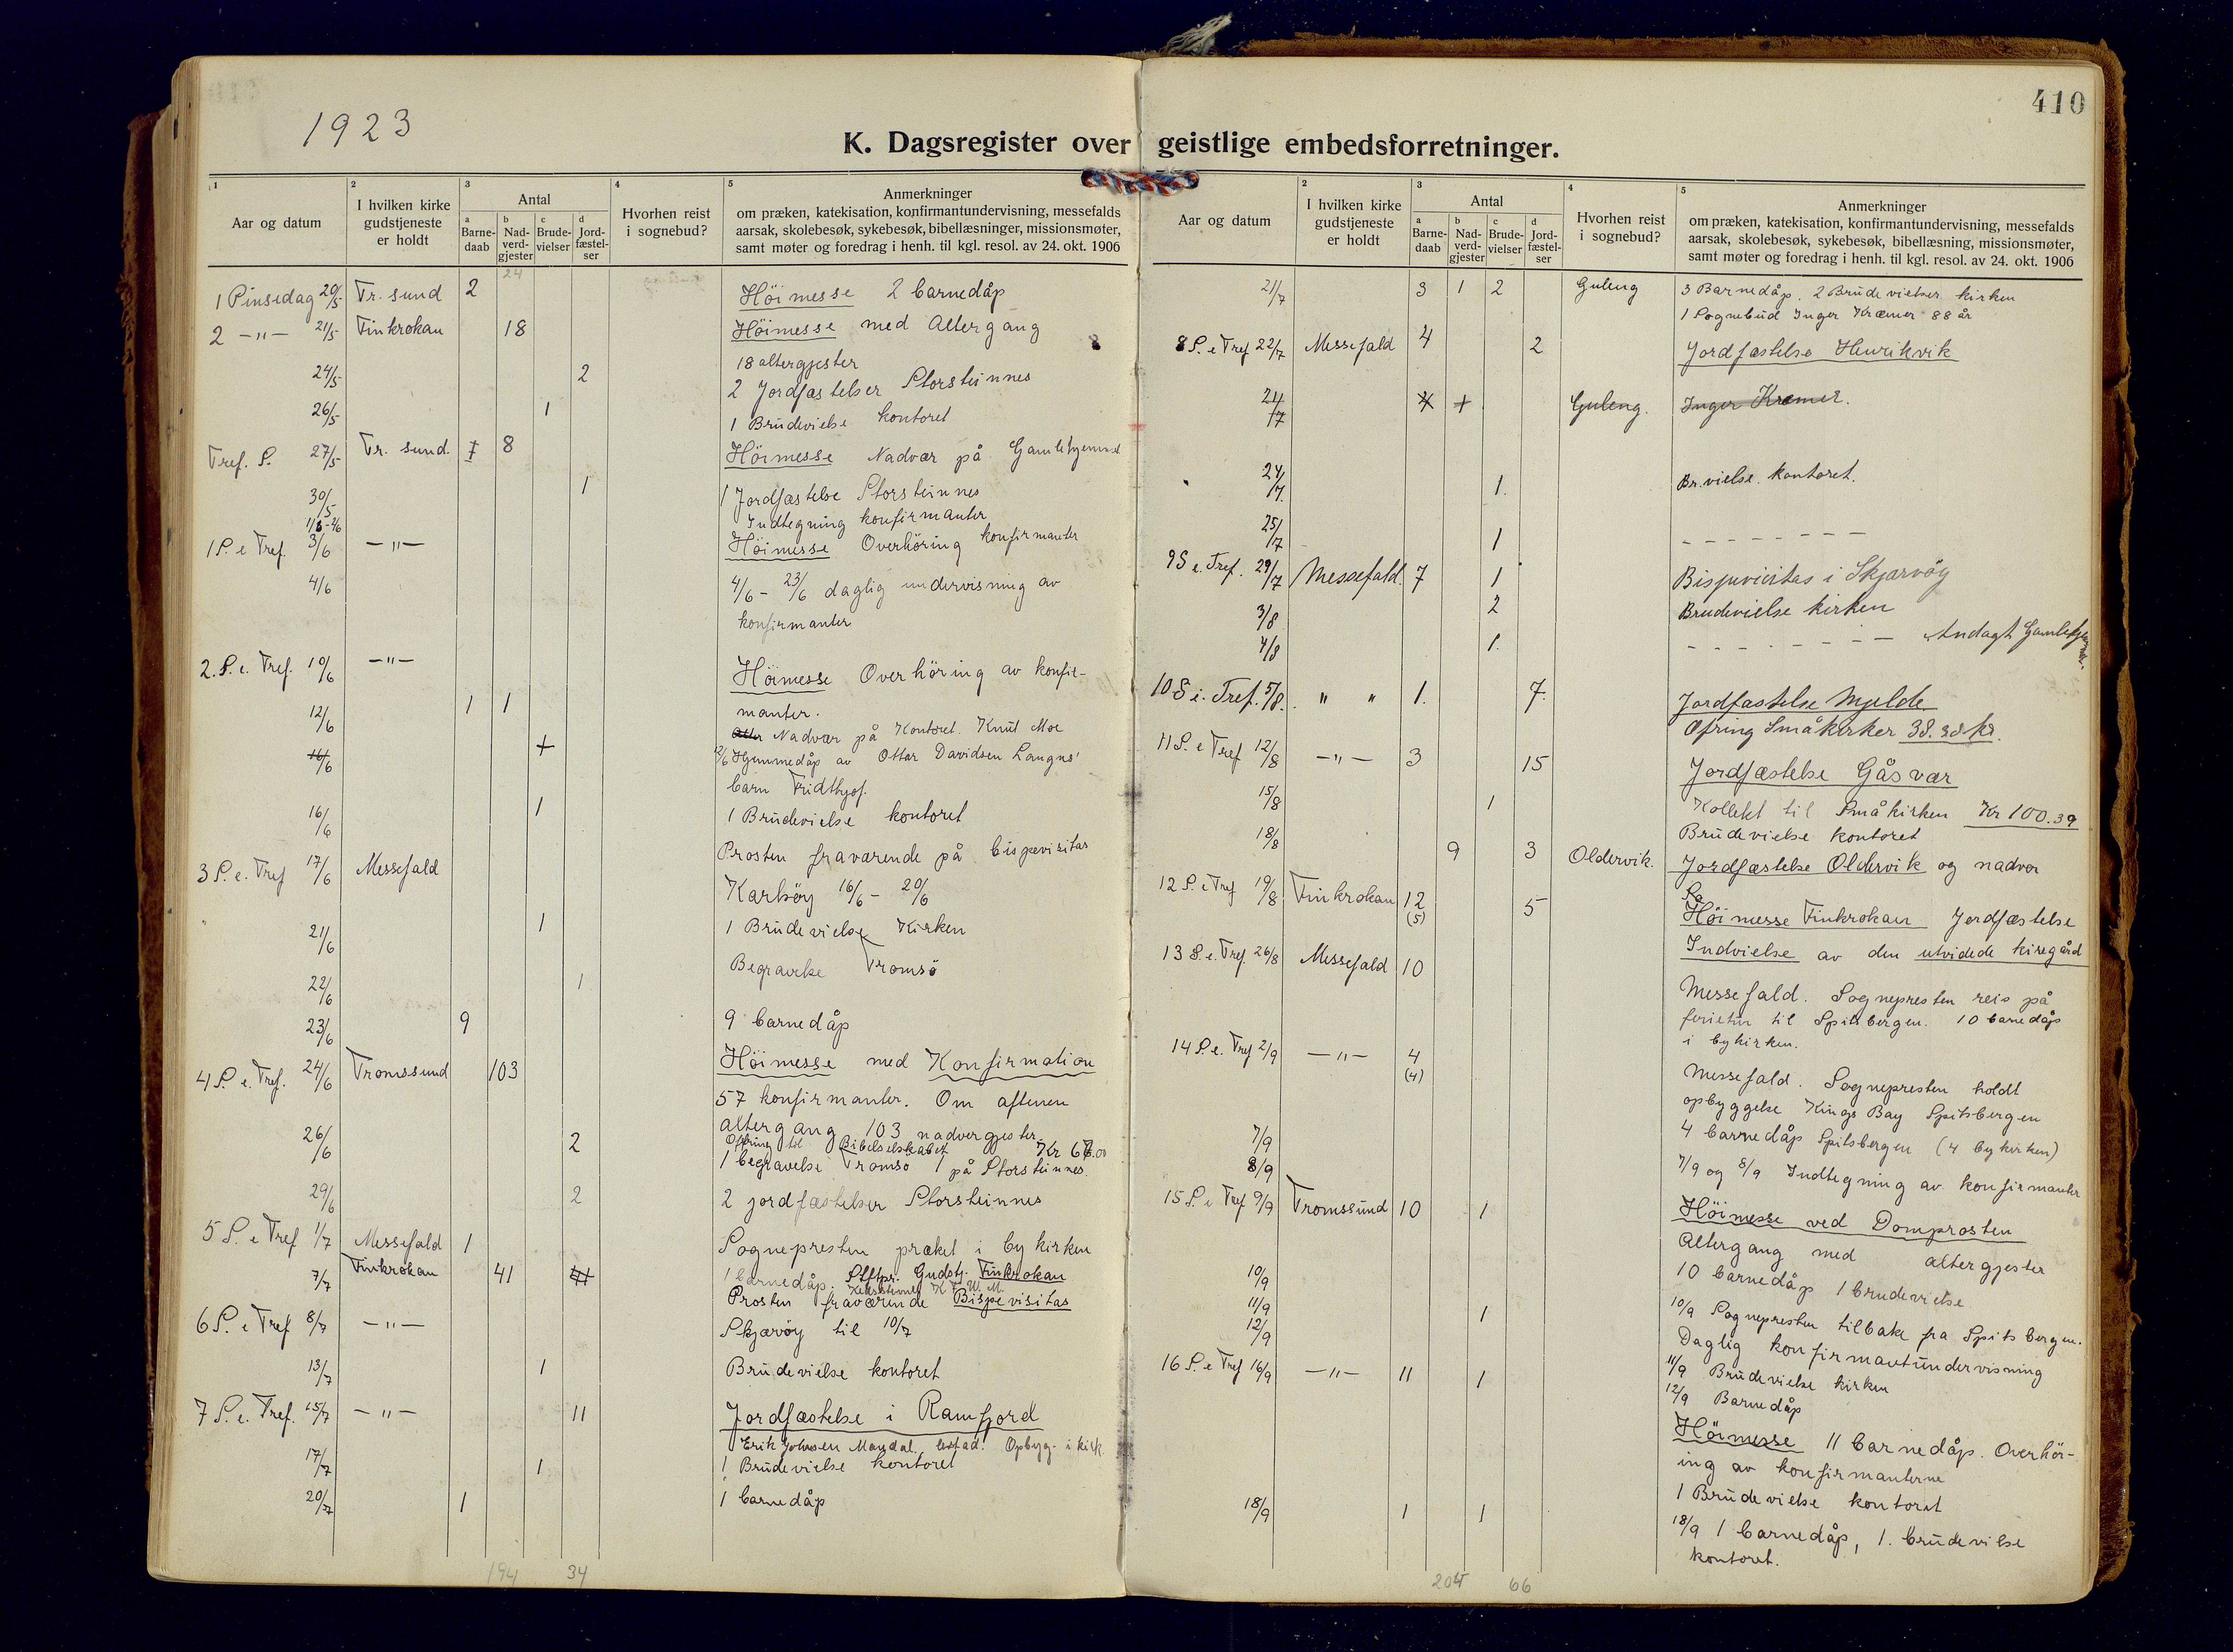 1923
410
K. Dagsregister over geistlige embedsforretninger.
1 Aar og datum
2 I hvilken kirke gudstjeneste er holdt
3 Antal
a Barne-daab
b Nad-verd-gjester
c Brude-vielser
d Jord-fæstel-ser
4 Hvorhen reist i sognebud?
5 Anmerkninger
om præken, katekisation, konfirmantundervisning, messefalds
aarsak, skolebesøk, sykebesøk, bibellæsninger, missionsmøter,
samt møter og foredrag i henh. til kgl. resol. av 24. okt. 1906
24
1 Pinsedag 20/5 Tr. sund 2 Höimesse 2 barnedåp
2 -"- 21/5 Finkrokan 18 Höimesse med Altergang
18 altergjester
24/5 2 2 Jordfæstelser Storsteinnes
26/5 1 1 Brudevielse kontoret
Tref. S. 27/5 Tr. sund. 1 8 Höimesse Nadvær på Gamlehjemmet
30/5 1 1 Jordfæstelse Storsteinnes
1/6-2/6 Indtegning konfirmanter
1 S. e Tref. 3/6 -"- Höimesse Overhöring konfirmanter
4/6 4/6 - 23/6 daglig undervisning av
konfirmanter
2. S. e. Tref. 10/6 -"- Höimesse Overhöring av konfir-
manter.
12/6 1 1 Nadvær på Kontoret. Knut Moe
16/6 + 12/6 Hjemmedåp av Ottar Davidsen Langnes'
barn Fridthjof.
16/6 1 1 Brudevielse kontoret
Prosten fraværende på bispevisitas
3 S. e. Tref 17/6 Messefald Karlsöy 16/6 - 20/6
21/6 1 1 Brudevielse Kirken
22/6 1 Begravelse Tromsö
23/6 9 9 barnedåp
4 S. e. Tref. 24/6 Tromssund 103 Höimesse med Konfirmation
57 konfirmanter. Om aftenen
altergang 103 nadvergjester
Ofring til Bibelselskabet Kr 67.00
26/6 2 1 begravelse Tromsö 1 på Storsteinnes.
29/6 2 2 jordfæstelser Storsteinnes
5 S. e Tref 1/7 Messefald 1 Sognepresten præket i bykirken
7/7 Finkrokan 41 1 barnedåp. Stftpr. Gudstj. Finkrokan
K. F. U. M.
Prosten fraværende Bispevisitas
6 S. e Tref 8/7 -"- Skjærvöy til 10/7
13/7 1 Brudevielse kontoret
7 S. e. Tref. 15/7 -"- 11 Jordfæstelse i Ramfjord
Erik Johnsen Mandal. Opbyg. i kirk.
17/7 1 1 Brudevielse kontoret
20/7 1 1 barnedåp
194 34
2 I hvilken kirke gudstjeneste er holdt
Aar og datum
3 Antal
a Barne-daab
b Nad-verd-gjester
c Brude-vielser
d Jord-fæstel-ser
4 Hvorhen reist i sognebud?
5 Anmerkninger
om præken, katekisation, konfirmantundervisning, messefalds
aarsak, skolebesøk, sykebesøk, bibellæsning, missionsmøter,
samt møter og foredrag i henh. til kgl. resol. av 24. okt. 1906
21/7 3 1 2 Guleng 3 Barnedåp. 2 Brudevielser kirken
1 Sognebud Inger Kræmer 88 år
8 S. e Tref 22/7 Messefald 4 2 Jordfæstelse Henrikvik
24/7 4 + Guleng. Inger Kræmer.
24/7. 1. Br.vielse kontoret.
25/7 1 - - - - - - - -
9 S e. Tref. 29/7 Messefald. 7 1 Bispevisitas i Skjærvöy
3/8 2 Brudevielse kirken
4/8 1. - - - - - - - Andagt Gamlehjemmet.
10 S e. Tref. 5/8. " " 1. 7. Jordfæstelse Mjelde.
Ofring Småkirker 38.38 kr.
11 S. e Tref 12/8 -"- 3 15 Jordfæstelse Gåsvær
Kollekt til Småkirken Kr 100.39
15/8 1 Brudevielse kontoret
18/8 9 3 Oldervik. Jordfæstelse Oldervik og nadver
12 S. e Tref 19/8 Finkrokan 12 (5) 5 Höimesse Finkrokan Jordfæstelse
Indvielse av den utvidede kiregård
13 S. e. Tref. 26/8 Messefald 10
Messefald. Sognepresten reis på
ferietur til Spitsbergen. 10 barnedåp
i bykirken.
14 S. e. Tref 2/9 -"- 4 (4)
Messefald. Sognepresten holdt
opbyggelse Kings Bay Spitsbergen
4 barnedåp Spitsbergen (4 bykirken)
7/9
8/9 7/9 og 8/9 Indtegning av konfirmanter
15 S. e Tref 9/9 Tromssund 10 1 Höimesse ved Domprosten
Altergang med altergjester
10 barnedåp 1 brudevielse
10/9 10/9 Sognepresten tilbake fra Spitsbergen.
Daglig konfirmantundervisning
11/9 1 11/9 Brudevielse kirken
12/9 12/9 Barnedåp
16 S. e Tref 16/9 -"- 11 1 Höimesse 11 barnedåp. Overhör-
ing av konfirmanterne
1 Brudevielse kontoret
18/9 1 1 18/9 1 barnedåp, 1. brudevilse
kontoret.
66